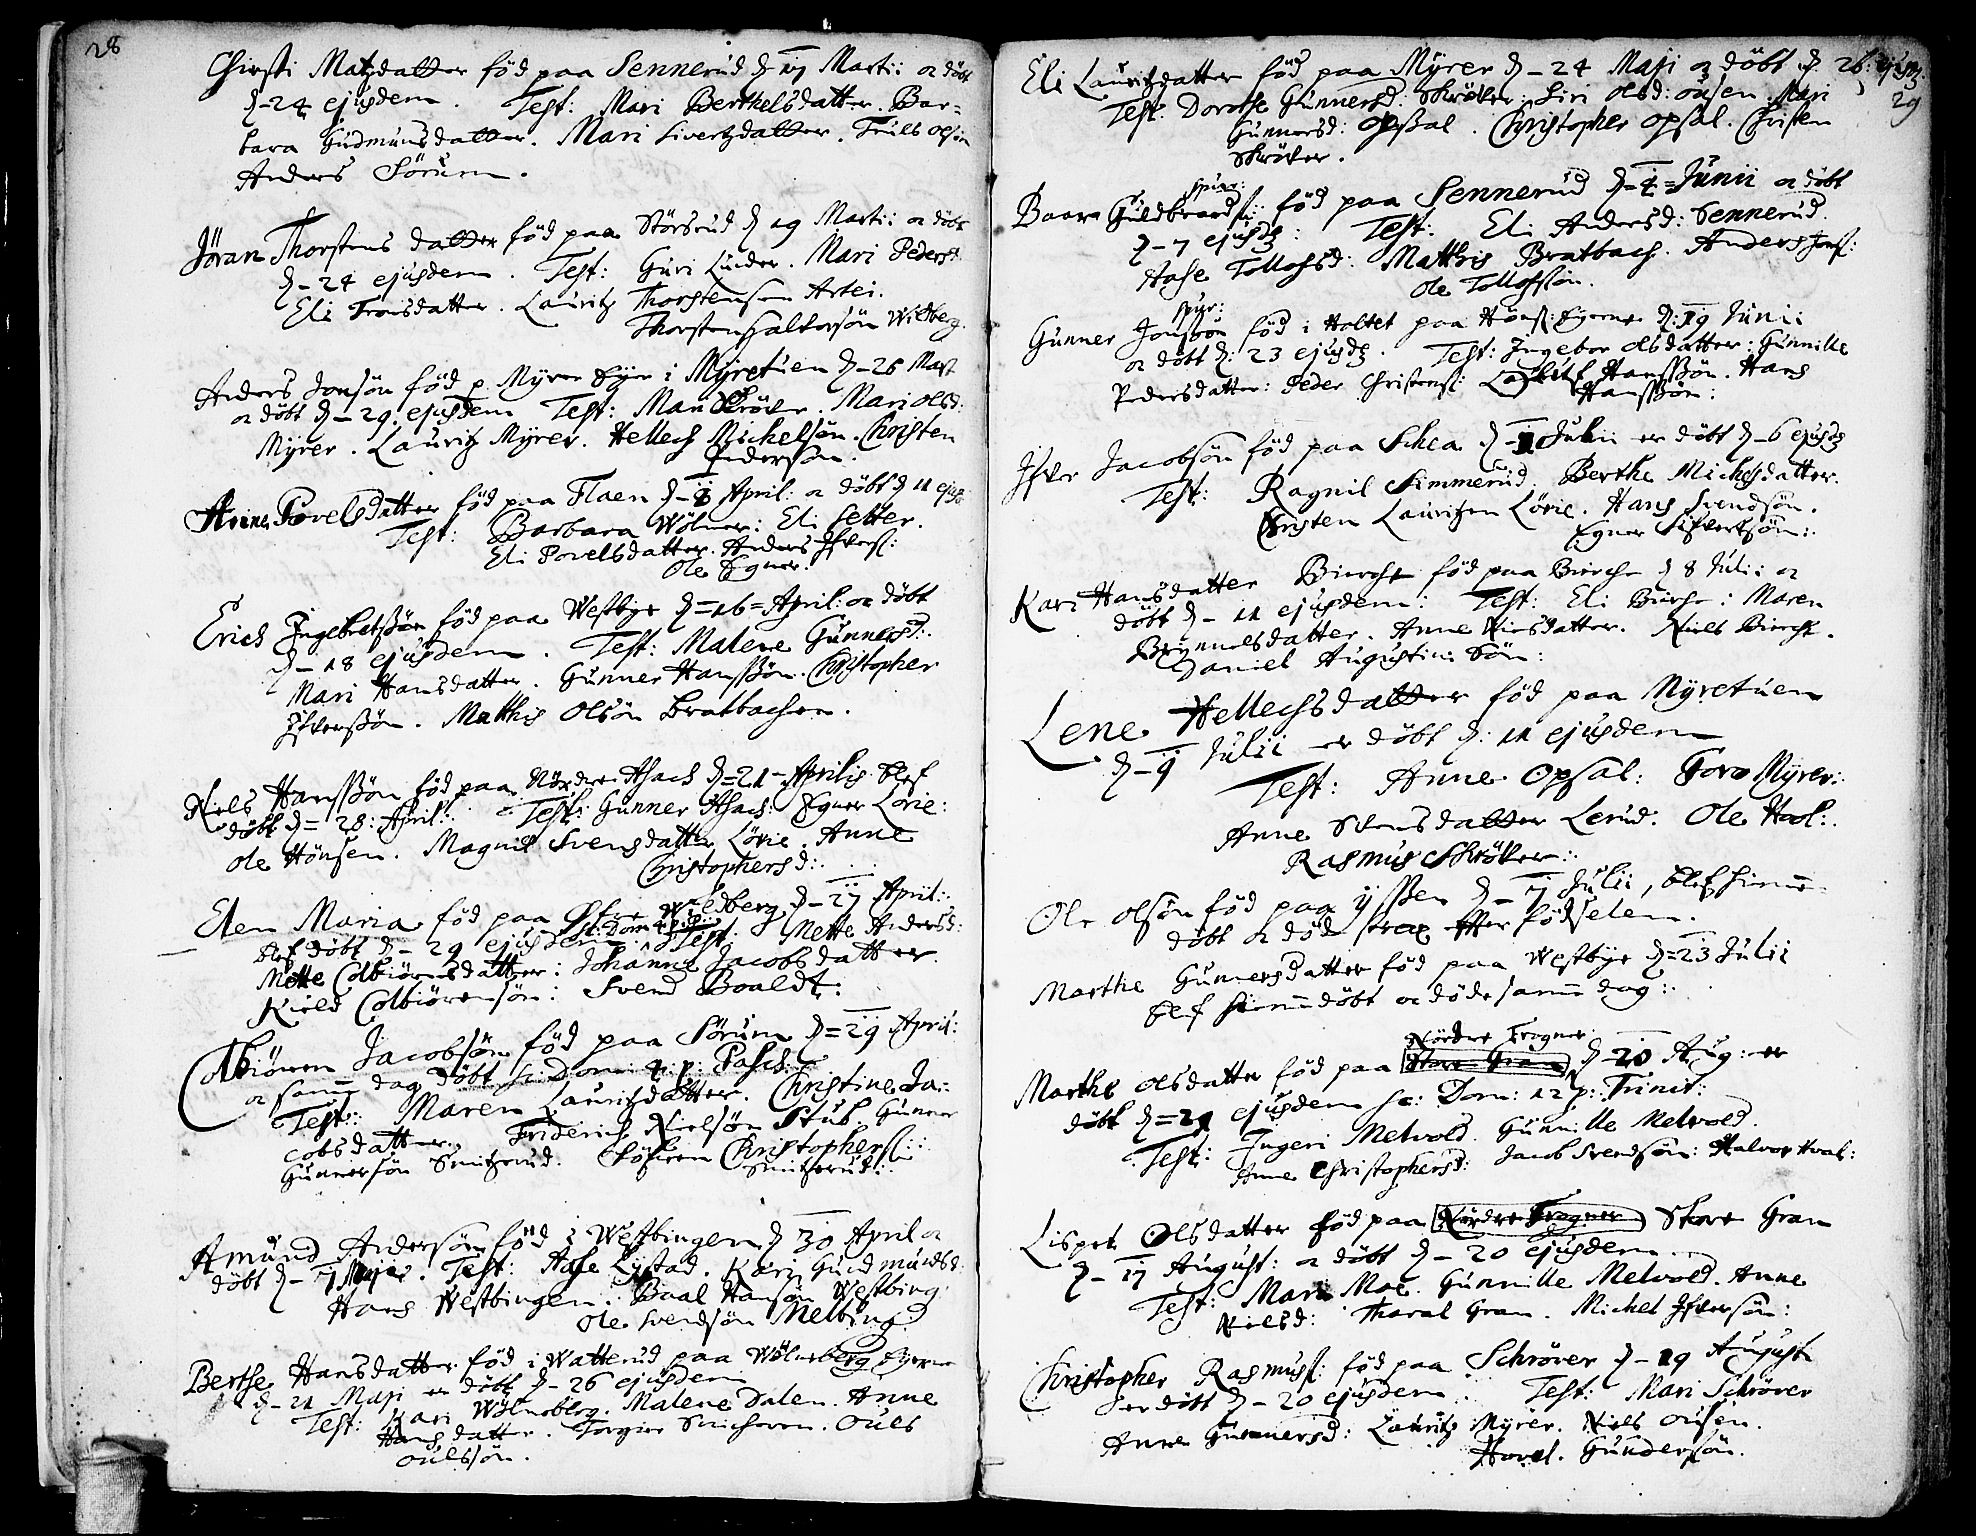 28
Chirsti Matzdatter föd paa Sennerud d 17 Martii oc döbt
d-24 ejusdem. Test: Mari Berthelsdatter. Bar-
bara Gudmunsdatter. Mari Sivertzdatter. Truls Olsön
Anders Sörum.
Jöran Thorstens datter föd paa Störsrud d 19 Martii oc döbt
d-24 ejusdem. Test: Guri Linder. Mari Pedersd:
Eli Tronsdatter. Lauritz Thorstensen Artei.
Thorsten Halvorsön Wilberg.
Anders Jonsön föd p. Myrer Eyer i Myretuen d-26 Mart
oc döbt d-29 ejusdem Test: Mari Skröver. Mari Olsd:
Myrer. Lauritz Myrer. Hellech Michelsön. Christen
Pedersøn.
Anne Povelsdatter föd paa Flaen d-8 April: oc döbt d 11 ejusd:
Test: Barbara Wölner: Eli Setter.
Eli Povelsdatter. Anders Ifvers:
Ole Egner.
Erich Ingebretssön föd paa Westbye d=16=April: oc döbt
d-18 ejusdem. Test: Malene Gunnersd:
Mari Hansdatter. Gunner Hanssön. Christopher
Ifverssön. Matthis Olsön Bratbachen.
Niels Hanssön föd paa Nördre Asach d=21-Aprilis blef
döbt d=28: April: Test: Gunner Asach: Egner Lörie:
Ole Hönsen. Magnil Svensdatter Lörie. Anne
Christophersd:
Elen Maria föd paa Ofre Wilberg d-27 April:
blef döbt d-29 ejusdem Test: Mette Andersd:
Mette Colbiörnsdatter: Johanne Jacobsdatter
Kield Colbiörensön: Svend Boaldt:
Colbiören Jacobsön föd paa Sörum d=29 April:
oc samme dag döbt sc: Dom: 4 p: Pasch:
Test: Maren Lauritzdatter. Christine Ja-
cobsdatter. Friderich Nielsön Stub. Gunner
Gunnersön Smitzrud. Söfren Christophers:
Smitzrud:
Amund Andersön föd i Westbingen d 30 April oc
döbt d-7 Maji. Test: Aase Lystad. Kari Gudmundsd:
Hans Westbingen. Boal Hansön Westbing
Ole Svendsön Melbing
Berthe Hansdatter föd i Watterud paa Wölneberg Eyerne
d-21 Maji er döbt d-26 ejusdem
Test: Kari Wölneberg. Malene Dalen. Anne
Hans datter. Torgier Smehoven. Ouls
Oulssön.
Eli Lauritzdatter föd paa Myrer d-24 Maji oc döbt d. 26: ejusd:
29
Test: Dorothe Gunnersd: Skröver: Siri Olsd: Ousen. Mari
Gunnersd: Opsal. Christopher Opsal. Christen
Skröver.
spur:
Baaro Guldbrands: föd paa Sennerud d=4=Junii oc döbt
d-7 ejusd: Test: Eli Andersd: Sennerud.
Aase Tollofsd: Matthis Bratbach. Anders Jons:
Ole Tollofssön.
spur:
Gunner Jonssön föd i Holtet paa Höns: Eyerne d: 19 Junii
oc döbt d: 23 ejusd: Test: Ingebor Olsdatter: Gunnille
Pedersdatter: Peder Christens: Hanssön. Hans
Hanssön:
Ifver Jacobsön föd paa Schea d-1 Julii er döbt d-6 ejusd
Test: Ragnil Simmerud. Berthe Michelsdatter.
Christen Lauritzen Lörie. Hans Svendsön.
Egner Sifvertsön:
Kari Hansdatter Bierche föd paa Bierche d 8 Julii oc
döbt d-11 ejusdem: Test: Eli Bierche: Maren
Brynnelsdatter. Anne Nirsdatter. Niels Bierche.
Daniel Augustini Sön:
Lene Hellechsdatter föd paa Myretuen
d-9 Julii er döbt d: 11 ejusdem
Test: Anne Opsal: Goro Myrer:
Anne Svensdatter Lerud. Ole Hol:
Rasmus Skröver:
Ole Olsön föd paa Yssen d-7 Julii, blef hiemme
döbt oc död strax efter födselen.
Marthe Gunnersdatter föd paa Westbye d=23 Julii
blef hiemme döbt oc döde samme dag:
Nördre Frogner
Marthe Olsdatter föd paa Store Gran d-20 Aug: er
döbt d=21 ejusdem sc: Dom: 12 p: Trinit:
Test: Ingeri Melvold. Gunnille Melvold.
Anne Christophersd: Jacob Svendsön: Halvor Hval:
Lispet Olsdatter föd paa Nördre Frogner Store Gran
d-17 August: oc döbt d-20 ejusdem
Test: Mari Moe. Gunnille Melvold. Anne
Nielsd: Tharal Gran. Michel Ifversön:
Christopher Rasmuss: föd paa Schröver d-19 August
er döbt d-20 ejusdem. Test: Mari Schröver
Anne Gunnersd: Lauritz Myrer. Niels Ousen.
Hovel. Gundersön.